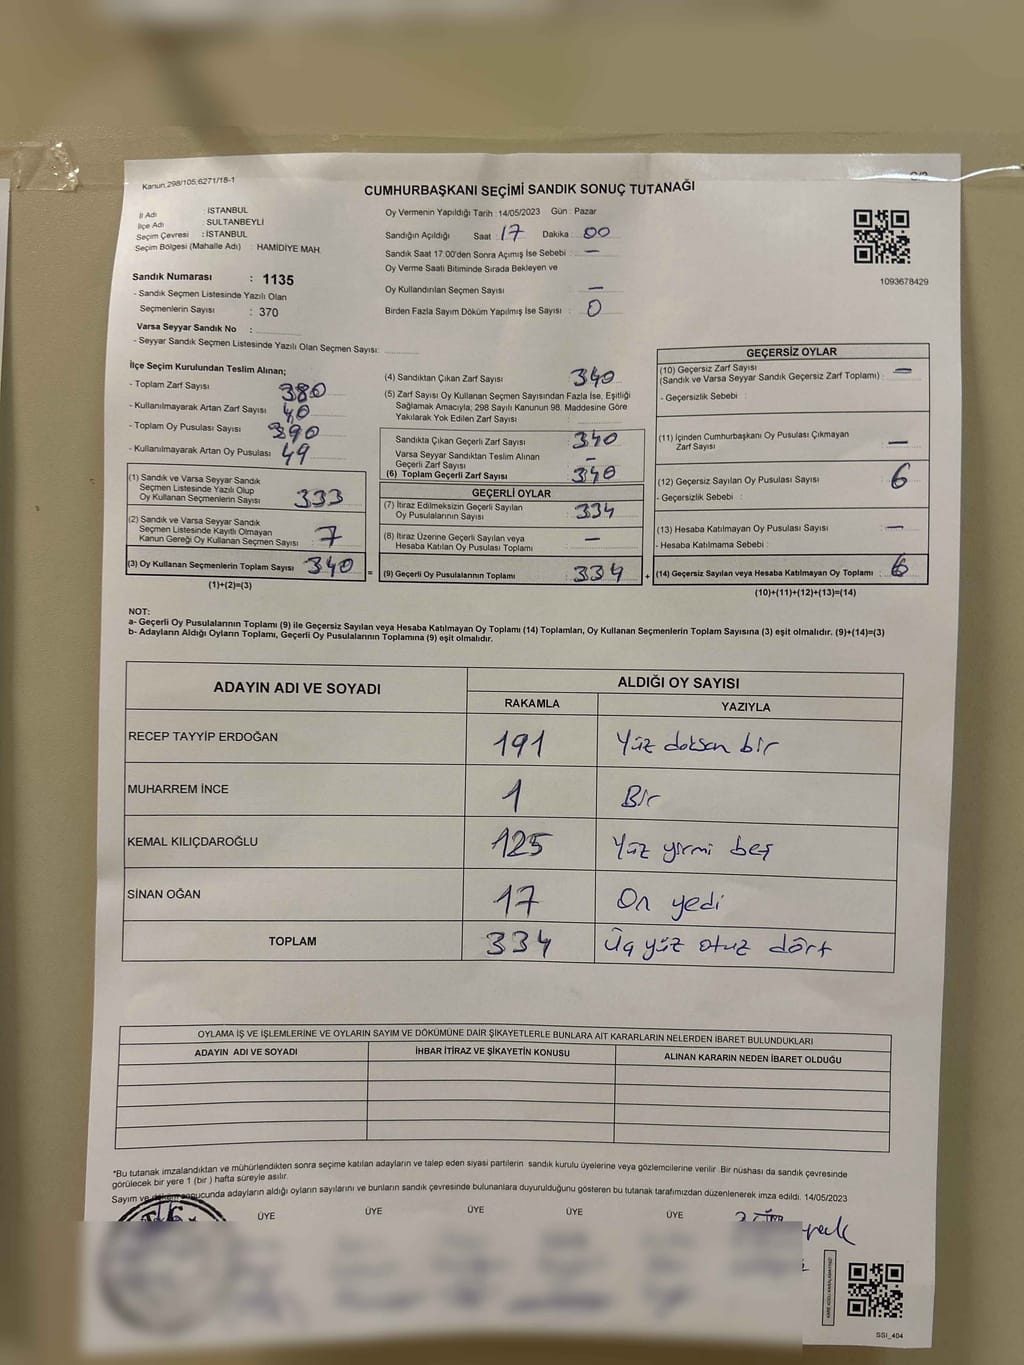 Kanun,298/105,6271/18-1
CUMHURBAŞKANI SEÇİMİ SANDIK SONUÇ TUTANAĞI
İl Adı : İSTANBUL
İlçe Adı : SULTANBEYLİ
Seçim Çevresi : İSTANBUL
Seçim Bölgesi (Mahalle Adı) : HAMİDİYE MAH
Sandık Numarası : 1135
- Sandık Seçmen Listesinde Yazılı Olan
Seçmenlerin Sayısı : 370
Varsa Seyyar Sandık No :
- Seyyar Sandık Seçmen Listesinde Yazılı Olan Seçmen Sayısı:
Oy Vermenin Yapıldığı Tarih : 14/05/2023 Gün : Pazar
Sandığın Açıldığı Saat 17 Dakika : 00
Sandık Saat 17:00'den Sonra Açımış İse Sebebi : —
Oy Verme Saati Bitiminde Sırada Bekleyen ve
Oy Kullandırılan Seçmen Sayısı : —
Birden Fazla Sayım Döküm Yapılmış İse Sayısı : 0
1093678429
İlçe Seçim Kurulundan Teslim Alınan;
- Toplam Zarf Sayısı : 380
- Kullanılmayarak Artan Zarf Sayısı : 40
- Toplam Oy Pusulası Sayısı : 390
- Kullanılmayarak Artan Oy Pusulası : 49
(1) Sandık ve Varsa Seyyar Sandık
Seçmen Listesinde Yazılı Olup
Oy Kullanan Seçmenlerin Sayısı : 333
(2) Sandık ve Varsa Seyyar Sandık
Seçmen Listesinde Kayıtlı Olmayan
Kanun Gereği Oy Kullanan Seçmen Sayısı : 7
(3) Oy Kullanan Seçmenlerin Toplam Sayısı : 340
(1)+(2)=(3)
=
(4) Sandıktan Çıkan Zarf Sayısı : 340
(5) Zarf Sayısı Oy Kullanan Seçmen Sayısından Fazla İse, Eşitliği
Sağlamak Amacıyla; 298 Sayılı Kanunun 98. Maddesine Göre
Yakılarak Yok Edilen Zarf Sayısı :
Sandıkta Çıkan Geçerli Zarf Sayısı : 340
Varsa Seyyar Sandıktan Teslim Alınan
Geçerli Zarf Sayısı : —
(6) Toplam Geçerli Zarf Sayısı : 340
GEÇERLİ OYLAR
(7) İtiraz Edilmeksizin Geçerli Sayılan
Oy Pusulalarının Sayısı : 334
(8) İtiraz Üzerine Geçerli Sayılan veya
Hesaba Katılan Oy Pusulası Toplamı : —
(9) Geçerli Oy Pusulalarının Toplamı : 334
+
GEÇERSİZ OYLAR
(10) Geçersiz Zarf Sayısı
(Sandık ve Varsa Seyyar Sandık Geçersiz Zarf Toplamı) : —
- Geçersizlik Sebebi :
(11) İçinden Cumhurbaşkanı Oy Pusulası Çıkmayan
Zarf Sayısı : —
(12) Geçersiz Sayılan Oy Pusulası Sayısı : 6
- Geçersizlik Sebebi :
(13) Hesaba Katılmayan Oy Pusulası Sayısı : —
- Hesaba Katılmama Sebebi :
(14) Geçersiz Sayılan veya Hesaba Katılmayan Oy Toplamı : 6
(10)+(11)+(12)+(13)=(14)
NOT:
a- Geçerli Oy Pusulalarının Toplamı (9) ile Geçersiz Sayılan veya Hesaba Katılmayan Oy Toplamı (14) Toplamları, Oy Kullanan Seçmenlerin Toplam Sayısına (3) eşit olmalıdır. (9)+(14)=(3)
b- Adayların Aldığı Oyların Toplamı, Geçerli Oy Pusulalarının Toplamına (9) eşit olmalıdır.
ADAYIN ADI VE SOYADI
ALDIĞI OY SAYISI
RAKAMLA YAZIYLA
RECEP TAYYİP ERDOĞAN 191 Yüz doksan bir
MUHARREM İNCE 1 Bir
KEMAL KILIÇDAROĞLU 125 Yüz yirmi beş
SİNAN OĞAN 17 On yedi
TOPLAM 334 Üç yüz otuz dört
OYLAMA İŞ VE İŞLEMLERİNE VE OYLARIN SAYIM VE DÖKÜMÜNE DAİR ŞİKAYETLERLE BUNLARA AİT KARARLARIN NELERDEN İBARET BULUNDUKLARI
ADAYIN ADI VE SOYADI İHBAR İTİRAZ VE ŞİKAYETİN KONUSU ALINAN KARARIN NEDEN İBARET OLDUĞU
*Bu tutanak imzalandıktan ve mühürlendikten sonra seçime katılan adayların ve talep eden siyasi partilerin sandık kurulu üyelerine veya gözlemcilerine verilir .Bir nüshası da sandık çevresinde
görülecek bir yere 1 (bir ) hafta süreyle asılır.
Sayım ve döküm sonucunda adayların aldığı oyların sayılarını ve bunların sandık çevresinde bulunanlara duyurulduğunu gösteren bu tutanak tarafımızdan düzenlenerek imza edildi. 14/05/2023
ÜYE ÜYE ÜYE ÜYE ÜYE
SSI_404